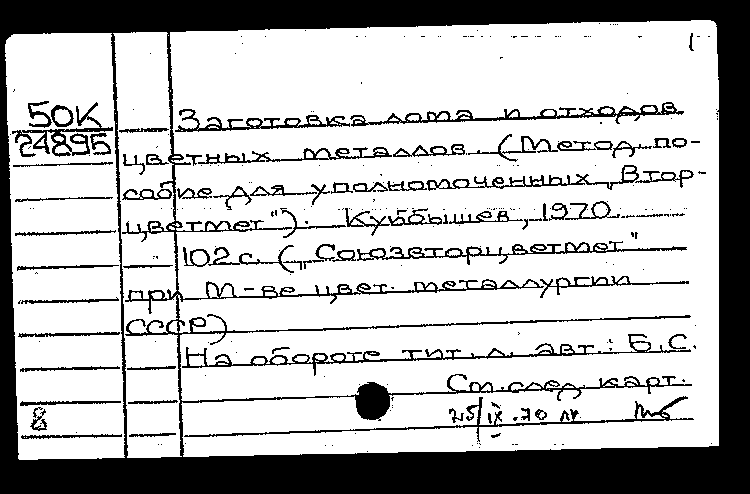 1
50К
24895
Заготовка лома и отходов
цветных металлов. (Метод. по-
собие для уполномоченных „Втор-
цветмет"). Куйбышев, 1970.
102 с. („Союзвторцветмет"
при М-ве цвет. металлургии
СССР)
На обороте тит. л. авт.: Б.С.
См. след. карт.
8
25/IX.70